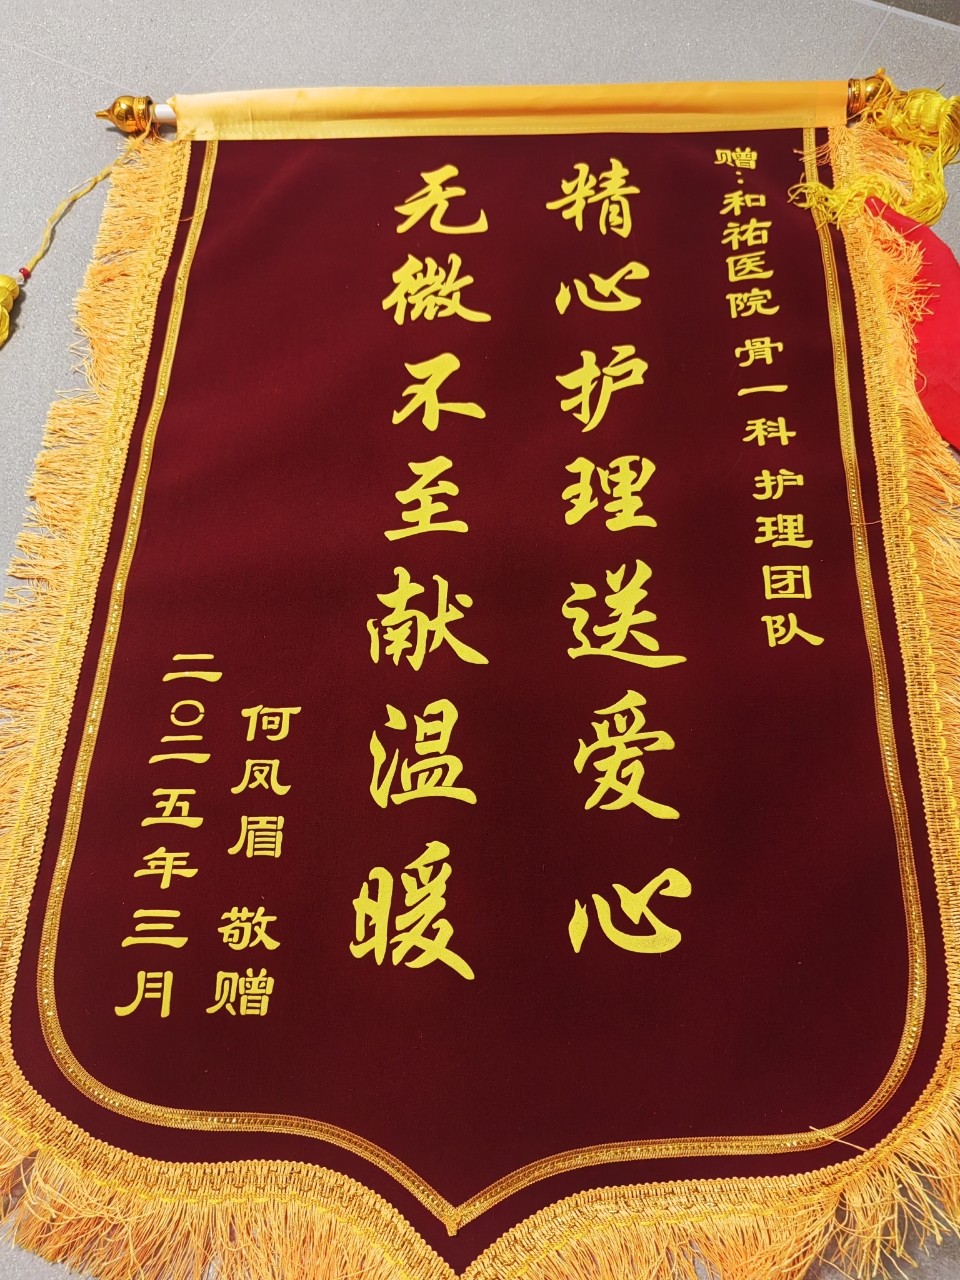 赠:和祐医院 骨一科 护理团队
精心护理送爱心
无微不至献温暖
何凤眉 敬赠
二〇二五年三月